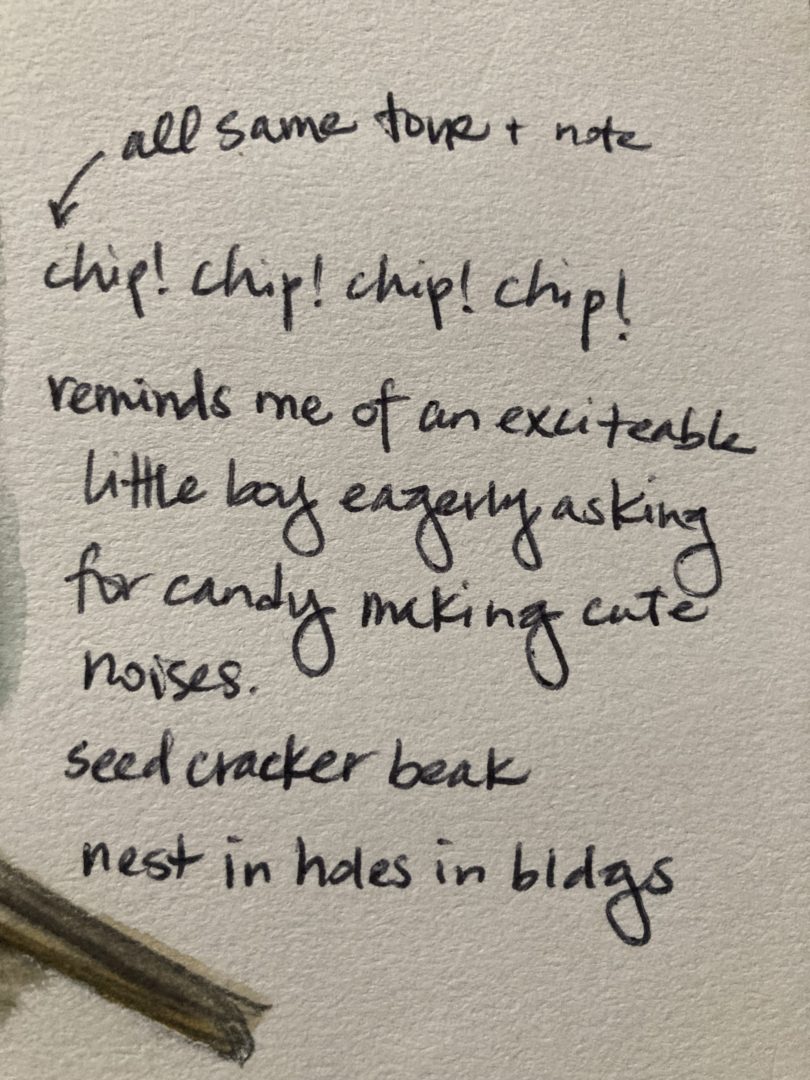 all same tone + note
chip! chip! chip! chip!
reminds me of an exciteable
little boy eagerly asking
for candy making cute
noises.
seed cracker beak
nest in holes in bldgs